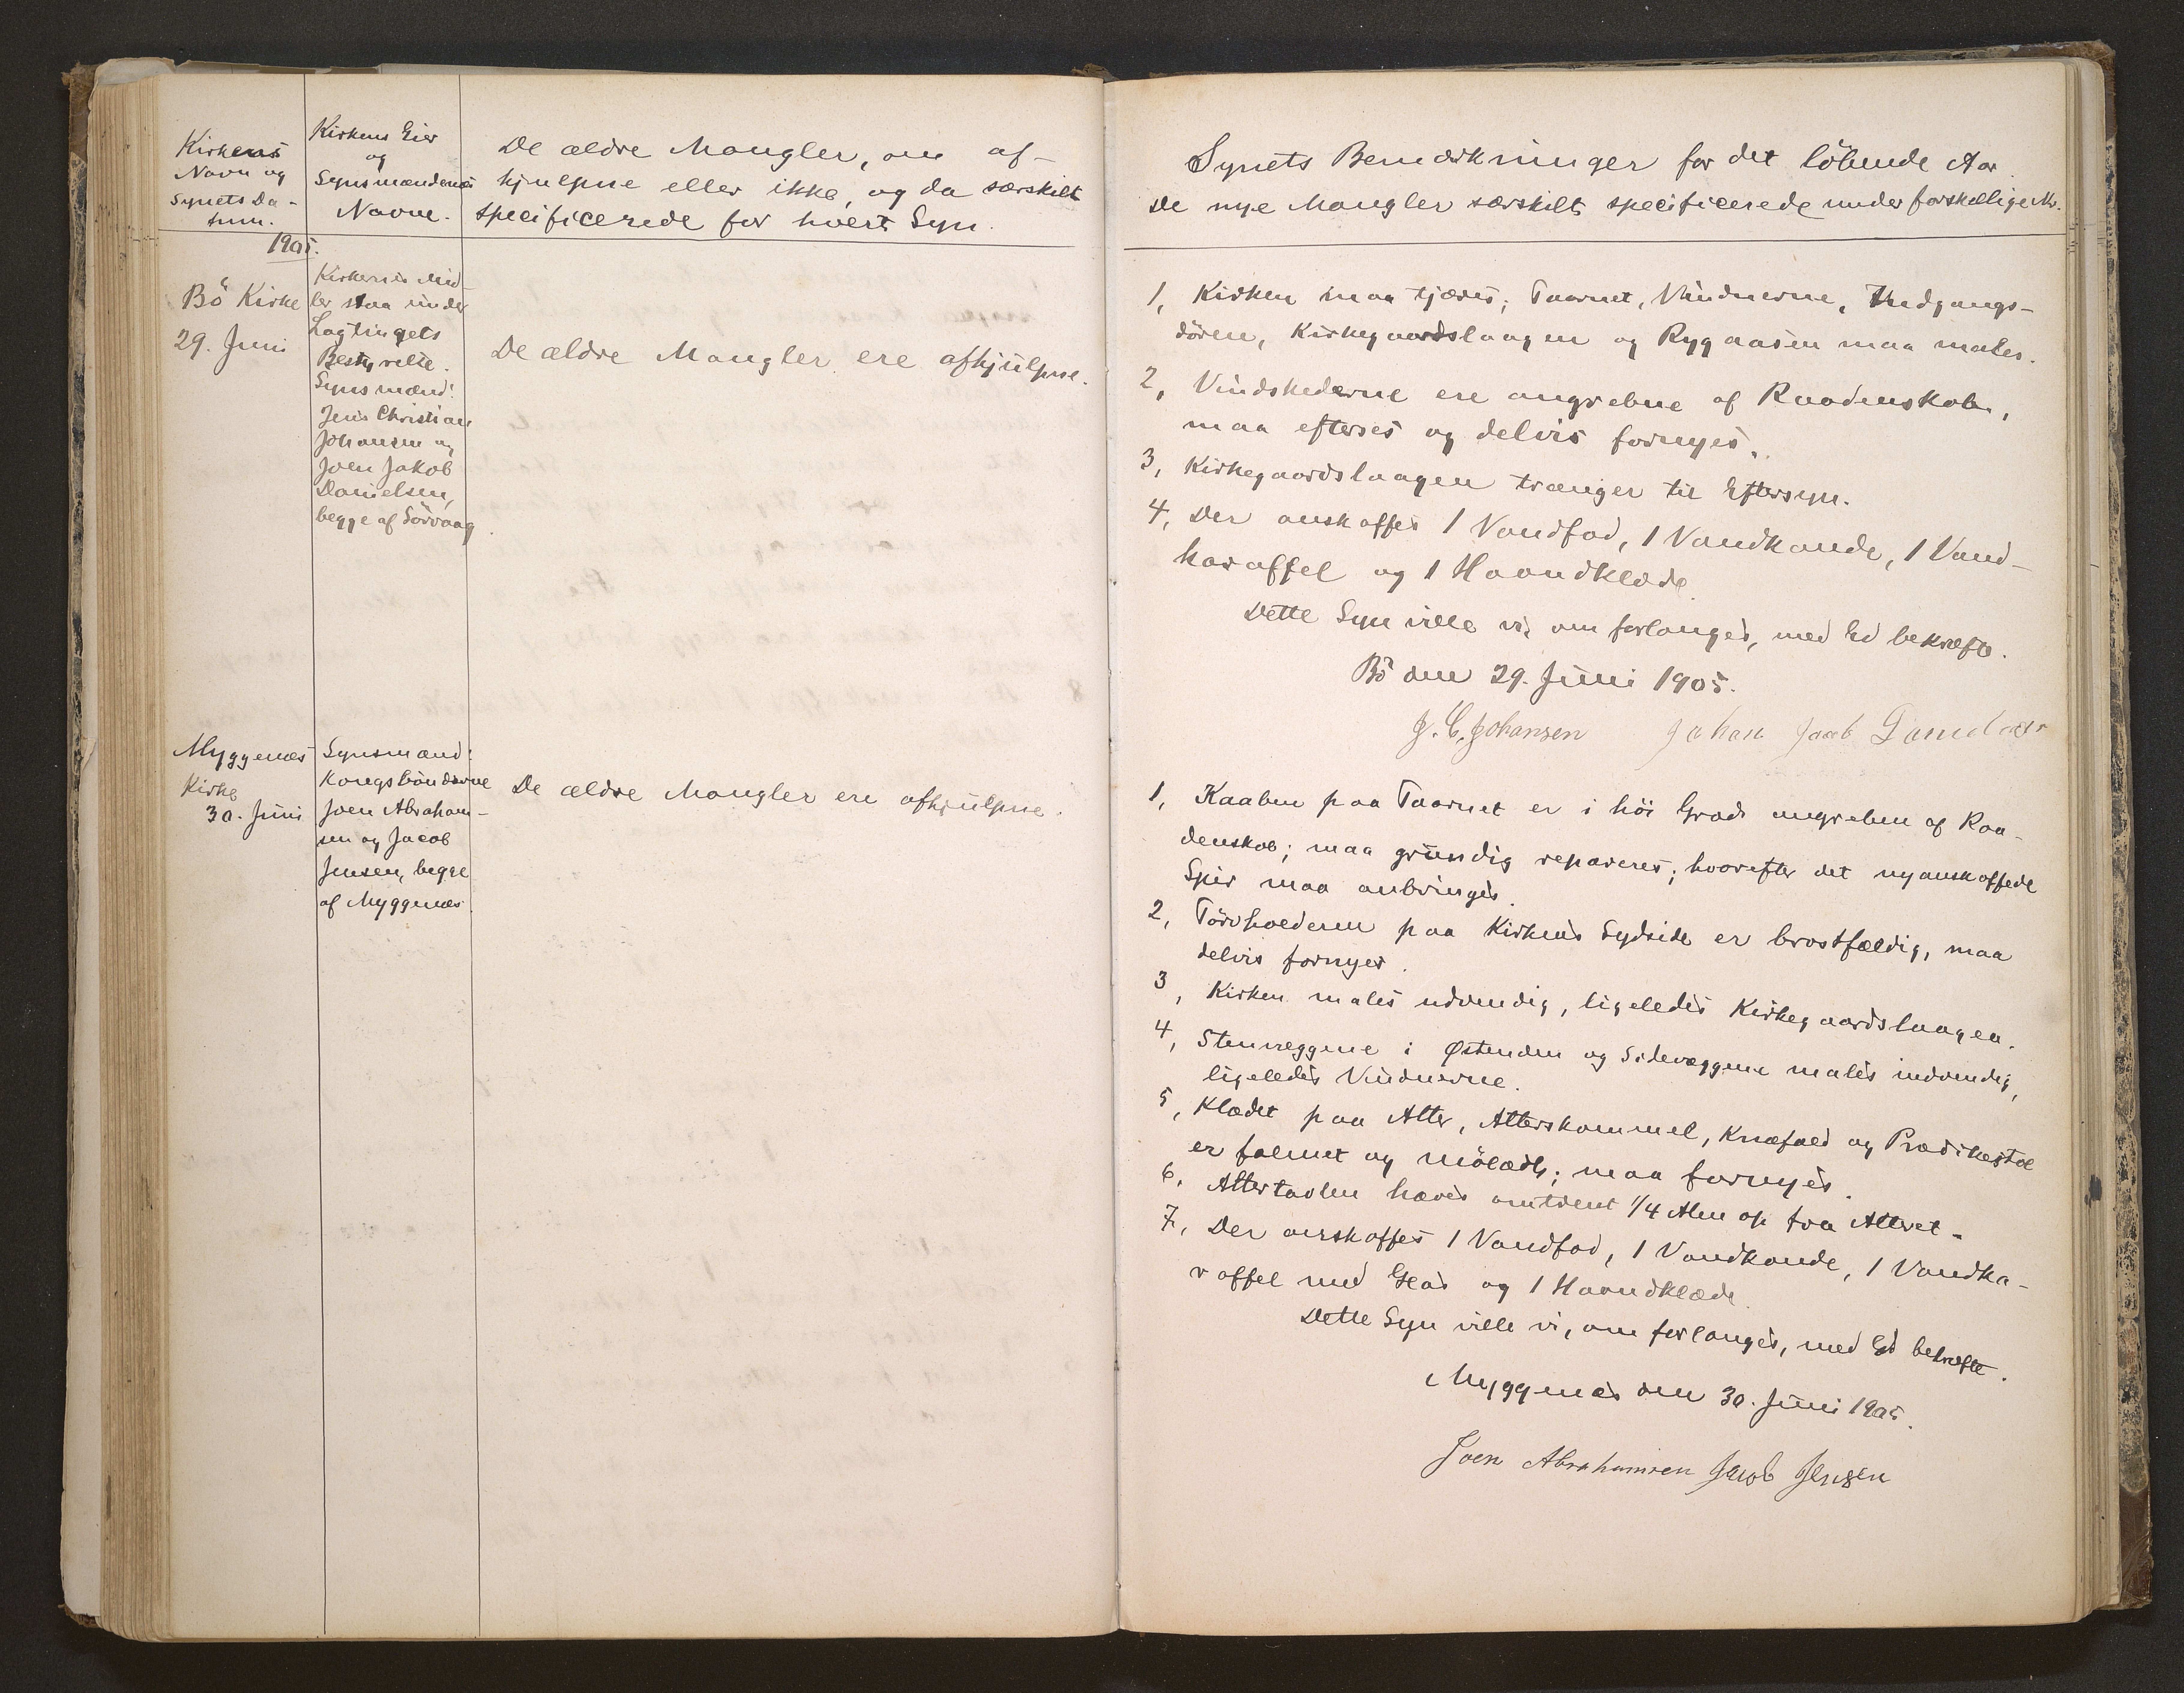 Kirkens
Navn og
Synets Da-
tum.
Kirkens Eier
og
Synsmændenes
Navne.
De ældre Mangler, om af-
hjulpne eller ikke, og da særskilt
specificerede for hvert Syn.
1905.
Bö Kirke
29. Juni
Kirkernes Mid-
ler staa under
Lagtingets
Bestyrelse.
Synsmænd:
Jens Christian
Johansen og
Joen Jakob
Danielsen,
begge af Sörvaag.
De ældre Mangler ere afhjulpne.
Myggenæs
Kirke
30. Juni
Synsmænd:
Kongsbönderne
Joen Abraham-
sen og Jacob
Jensen, begge
af Myggenæs.
De ældre Mangler ere afhjulpne.
Synets Bemærkninger for det löbende Aar.
De nye Mangler særskilt specificerede under forskellige Nr.
1, Kirken maa tjæres; Taarnet, Vinduerne, Indgangs-
dören, Kirkegaardslaagen og Rygaasen maa males.
2, Vindskederne ere angrebne af Raadenskab,
maa efterses og delvis fornyes.
3, Kirkegaardslaagen trænger til Eftersyn.
4, Der anskaffes 1 Vandfad, 1 Vandkande, 1 Vand-
karaffel og 1 Haandklæde.
Dette Syn ville vi, om forlanges, med Ed bekræfte.
Bö den 29. Juni 1905.
J. C. Johansen Johan Jacob
1, Kaaben paa Taarnet er i höi Grad angreben af Raa-
denskab; maa grundig repareres; hvorefter det nyanskaffede
Spir maa anbringes.
2, Törvholderen paa Kirkens Sydside er bröstfældig, maa
delvis fornyes.
3, Kirken males udvendig, ligeledes Kirkegaardslaagen.
4, Stenvæggene i Østenden og Sidevæggene males indvendig,
ligeledes Vinduerne.
5, Klædet paa Alter, Alterskammel, Knæfald og Prædikestol
er falmet og mölædt; maa fornyes.
6, Altertavlen hæves omtrent 1/4 Alen op fra Alteret.
7, Der anskaffes 1 Vandfad, 1 Vandkande, 1 Vandka-
raffel med Glas og 1 Haandklæde.
Dette Syn ville vi, om forlanges, med Ed bekræfte.
Myggenæs den 30. Juni 1905.
Joen Abrahamsen Jacob Jensen